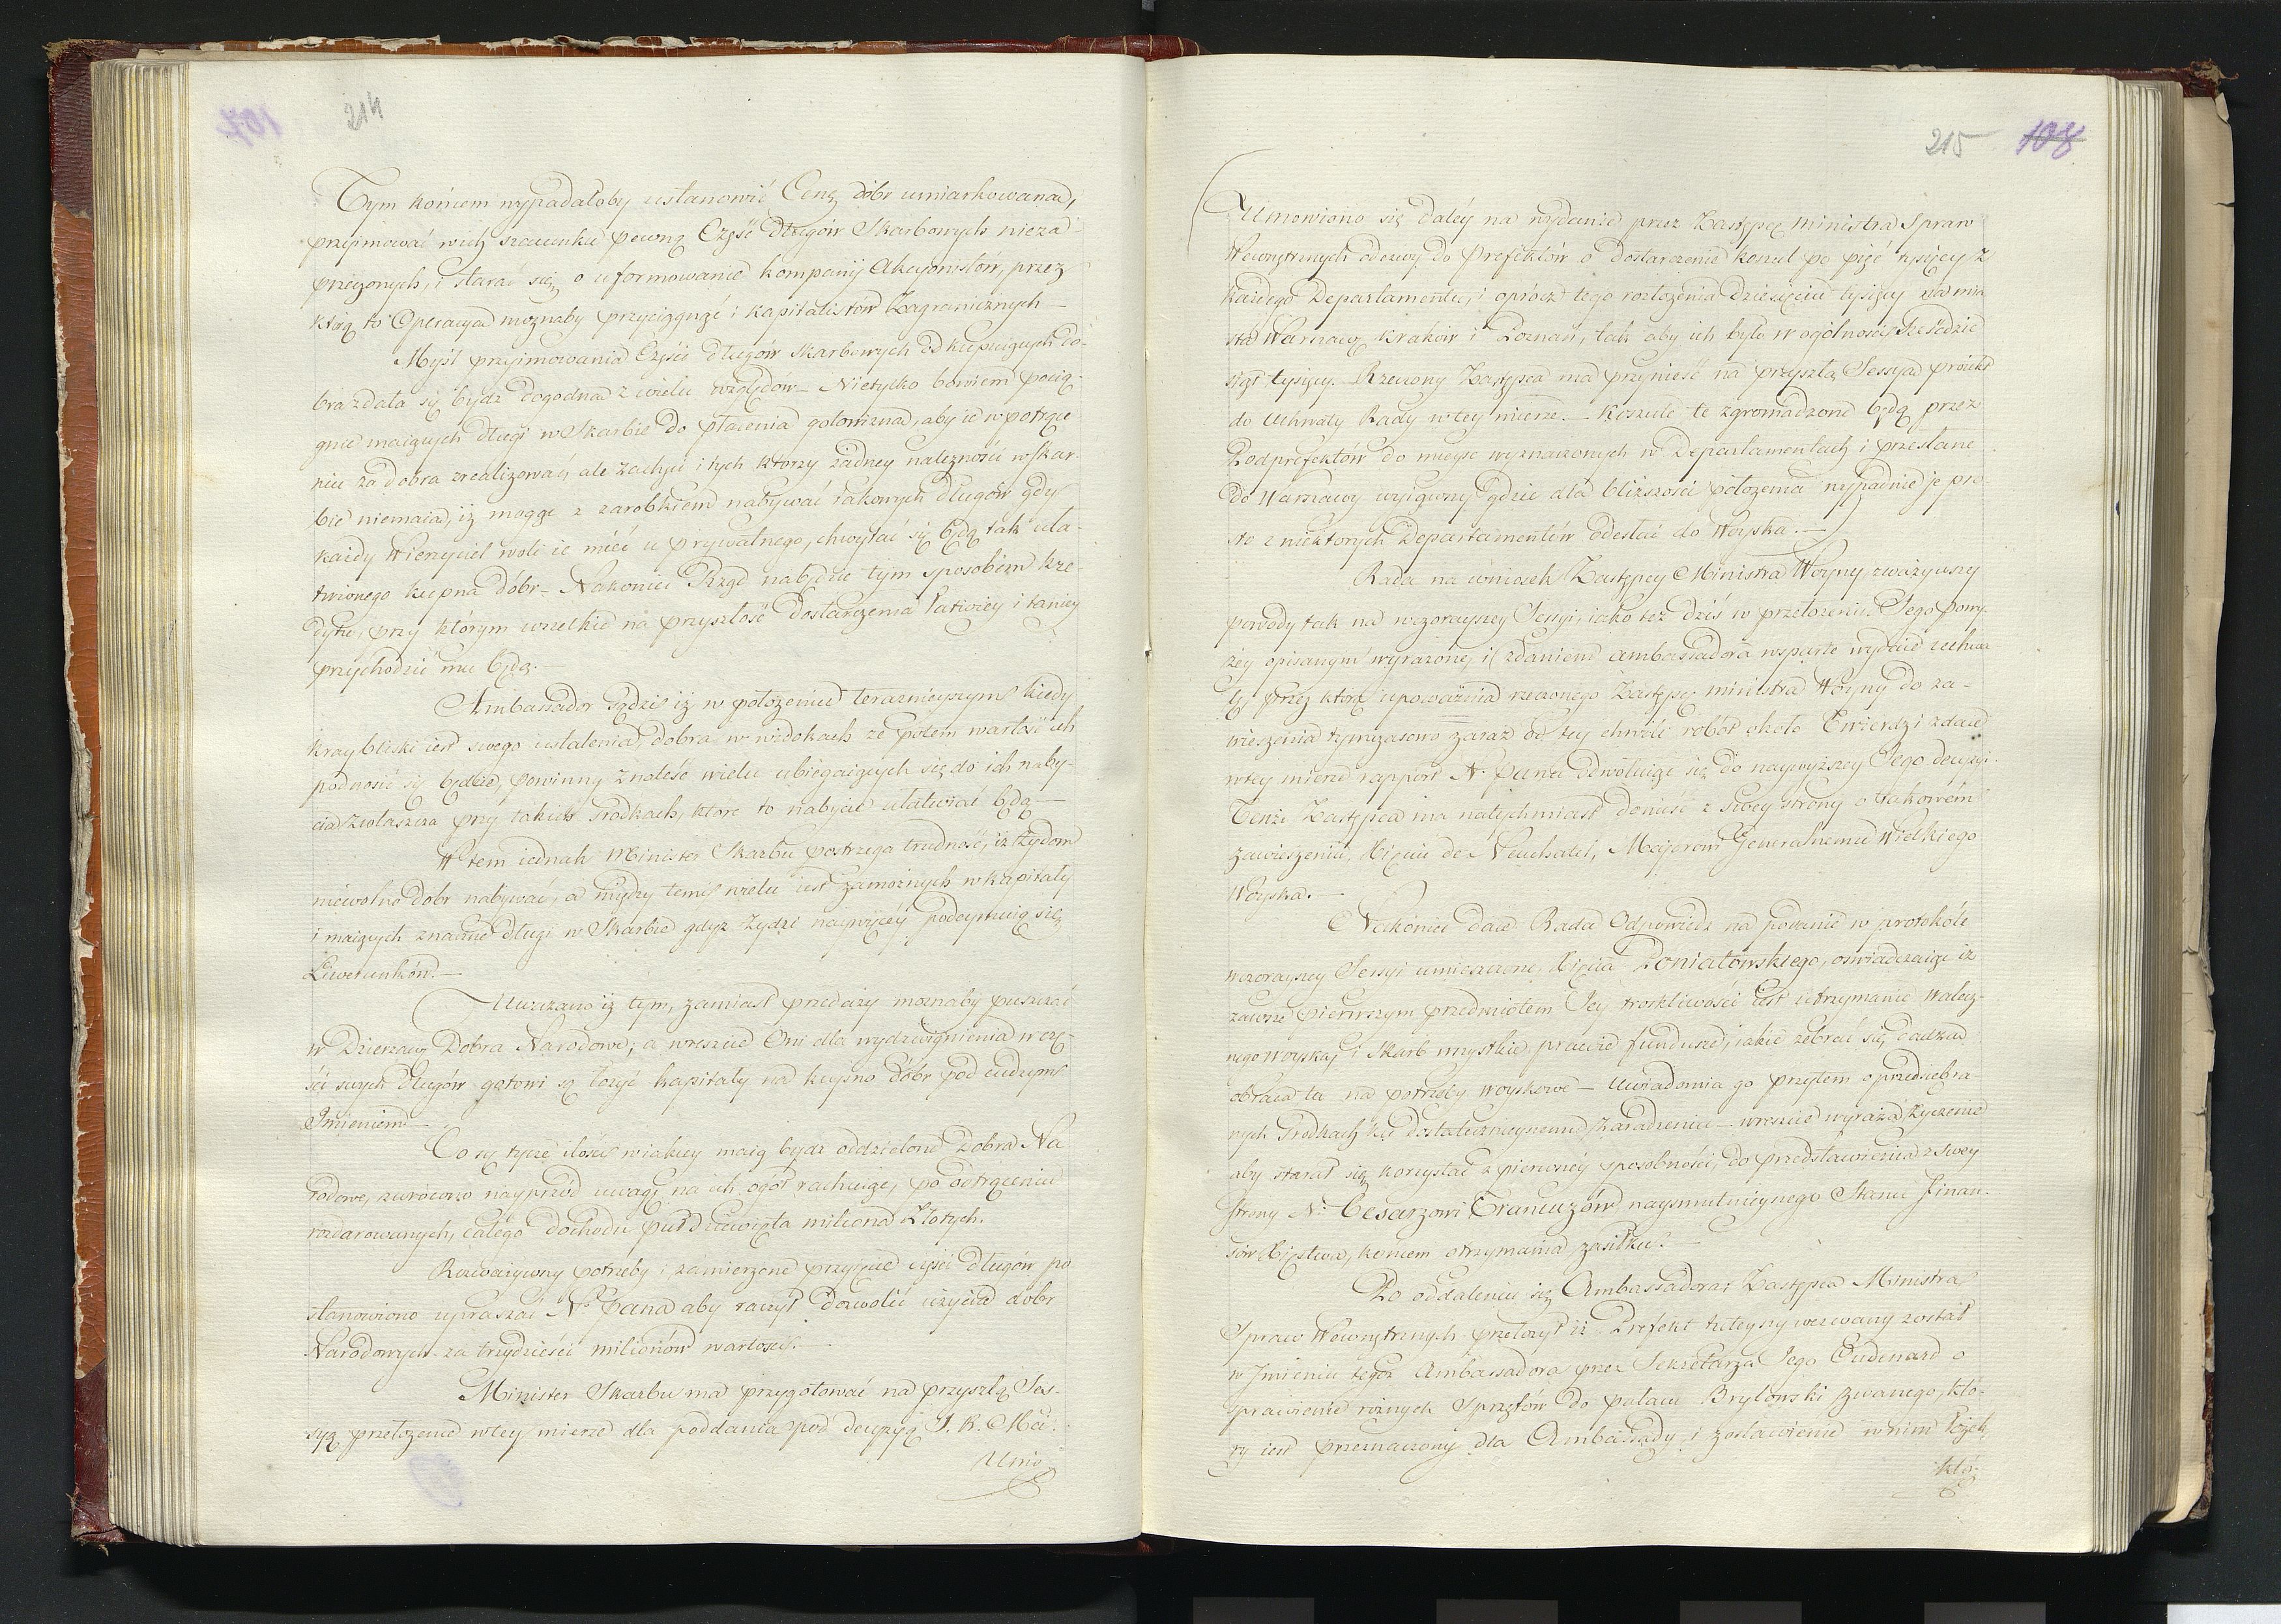 214
Tym końcem wypadałoby ustanowić Cenę dóbr umiarkowaną,
przyimować wich szacunku pewną Część długów Skarbowych nieza-
przeczonych, i starać się o uformowanie kompanij Akcyonistów, przez
którą to Operacyą możnaby przyciągnąć i kapitalistów Zagranicznych —
Myśl przyimowania Części długów Skarbowych od kupuiących do-
bra zdała się bydź dogodną z wielu względów — Nietylko bowiem pocią-
gnie maiących długi w Skarbie do płacenia gotowizną, aby ie w potrące-
niu za dobra zrealizować, ale zachęci i tych którzy żadney należności w Skar-
bie niemaią, iż mogąc z zarobkiem nabywać takowych długów gdy
każdy Wierzyciel woli ie mieć u prywatnego, chwytać się będą tak uła-
twionego kupna dóbr — Nakoniec Rząd nabędzie tym sposobem kre-
dytu, przy którym wszelkie na przyszłość dostarczenia łatwiey i taniey
przychodzić mu będą. —
Ambassador sądzi iż w położeniu teraźnieyszym kiedy
kray bliski iest swego ustalenia, dobra w widokach że potem wartość ich
podnosić się będzie, powinny znaleść wielu ubiegaiących się do ich naby-
cia zwłaszcza przy takich środkach, które to nabycie ułatwiać będą —
W tem iednak Minister Skarbu postrzega trudność, iż Żydom
niewolno dóbr nabywać, a między temi wielu iest zamożnych w kapitały
i maiących znaczne długi w Skarbie gdyż Żydzi naywięcéy podeymuią się
Liwerunków. —
Uważano iż tym, zamiast przedaży możnaby puszczać
w Dzierżawę Dobra Narodowe; a wreszcie Oni dla wydźwignienia w czę-
ści swych długów gotowi są łożyć kapitały na kupno dóbr pod cudzym
Imieniem —
Co się tycze ilości w iakiey maią bydź oddzielone Dobra Na
rodowe, zwrócono nayprzód uwagę na ich ogół rachuiąc, po odtrąceniu
rozdarowanych, całego dochodu puł dziewięta miliona Złotych.
Rozważywszy potrzeby i zamierzone przyięcie części długów po
stanowiono upraszać N. Pana aby raczył dozwolić użycia dóbr
Narodowych za trzydzieści milionów wartości. —
Minister Skarbu ma przygotować na przyszłą Ses-
syą przełożenie w tey mierze dla poddania pod decyzyą J. K. Mci.
Umo
215 108
Umowiono się daléy na wydanie przez Zastępcę Ministra Spraw
Wewnętrznych odezwy do Prefektów o dostarczenie koszul po pięć tysięcy z
każdego Departamentu, i oprócz tego rozłożenia dziesięciu tysięcy na mia
sta Warszawę Kraków i Poznań, tak aby ich było w ogólności sześćdzie
siąt tysięcy. Rzeczony Zastępca ma przynieść na przyszłą Sessyą proiekt
do Uchwały Rady w tey mierze. — Koszule te zgromadzone będą przez
Podprefektów do mieysc wyznaczonych w Departamentach i przesłane
do Warszawy wyiąwszy gdzie dla bliższości położenia wypadnie je pro
sto z niektorych Departamentów odesłać do Woyska. —
Rada na wniosek Zastępcy Ministra Woyny zważywszy
powody tak na wczorayszey Sessyi, iako też dziś w przełożeniu Jego powy-
żey opisanym wyrażone, i zdaniem Ambassadora wsparte wydaie uchwa-
łę przez którą upoważnia rzeczonego Zastępcę Ministra Woyny do za-
wieszenia tymczasowo zaraz od tey chwili robót około Twierdzi zdaie
w tey mierze rapport N. Panu odwołuiąc się do naywyższey Jego decyzyi.
Tenże Zastępca ma natychmiast donieść z swey strony o takowém
zawieszeniu, Xięciu de Neuchatel, Majorowi Generalnemu Wielkiego
Woyska. —
Nakoniec daie Rada Odpowiedź na podanie w protokóle
wczorayszey Sessyi umieszczone, Xięcia Poniatowskiego, oświadczaiąc iż
zawsze pierwszym przedmiotem Jey troskliwości iest utrzymanie walecz-
nego Woyska, i Skarb wszystkie prawie fundusze, iakie zebrać się dadzą
obraca ta na potrzeby Woyskowe — Uwiadomia go przytem o przedsiębra-
nych środkach ku dostatecznieyszemu zaradzeniu — wreszcie wyraża życzenie
aby starał się korzystać z pierwszéy sposobności, do przedstawienia z swey
strony N. Cesarzowi Francuzów naysmutnieyszego Stanu Finan-
sów Xięstwa, końcem otrzymania zasiłku. —
Po oddaleniu się Ambassadora, Zastępca Ministra
Spraw Wewnętrznych przełożył iż Prefekt tuteyszy wezwany został
w Imieniu tegoż Ambassadora przez Sekretarza Jego Oudenard o
sprawienie różnych Sprzętów do pałacu Brylowski zwanego, któ-
ry iest przeznaczony dla Ambassady, i zostawienie w nim tych,
któ-